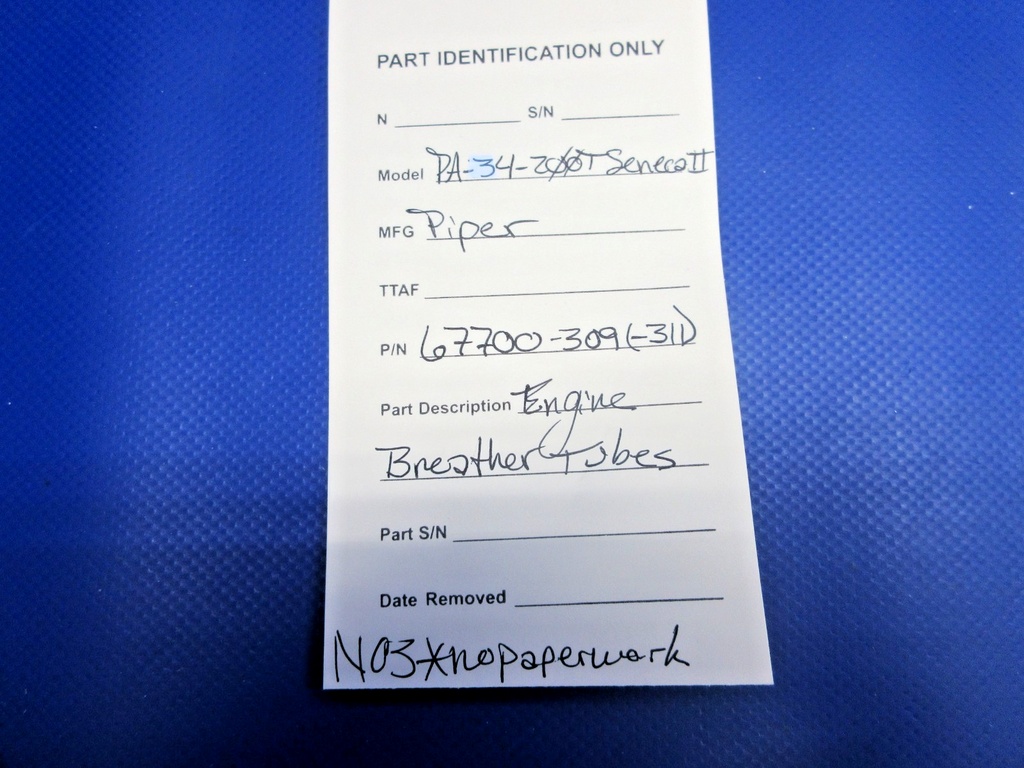 PART IDENTIFICATION ONLY
N ____________ S/N ____________
Model PA-34-200T Seneca II
MFG Piper
TTAF ____________
P/N 67700-309 (-311)
Part Description Engine
Breather Tubes
Part S/N ____________
Date Removed ____________
N03*nopaperwork